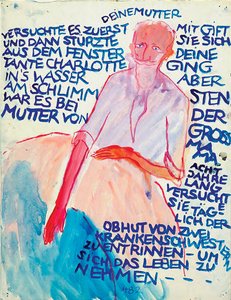 DEINE MUTTER
VERSUCHTE ES ZUERST MIT GIFT
UND DANN STÜRZTE SIE SICH
AUS DEM FENSTER DEINE
TANTE CHARLOTTE GING
IN'S WASSER ABER
AM SCHLIMM STEN
WAR ES BEI DER
MUTTER VON GROSS
MA
ACHT
JAHRE
LANG
VERSUCHT
SIE TÄG
LICH DER
OBHUT VON ZWEI
KRANKENSCHWESTERN
ZU ENTRINNEN - UM
SICH DAS LEBEN ZU
NEHMEN - - -